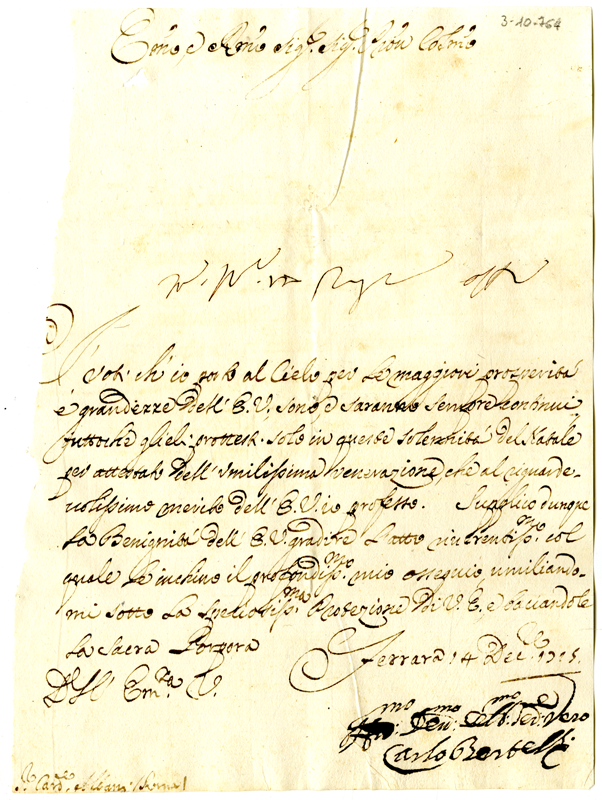 3-10-764
Emo e Rmo Sigr. Sigr. Pron Colmo
I voti ch' io porto al Cielo per le maggiori prosperità
e grandezze dell' E. V. sono e saranno sempre continui
tuttochè glieli protesti solo in queste solennità del Natale
per attestato dell' umilissima venerazione che al riguarde-
volissimo merito dell' E. V. io professo. Supplico dunque
la Benignità dell' E. V. gradire l'atto riverentissmo. col
quale le inchino il profondissmo. mio ossequio umiliando-
mi sotto la speciosissma. Protezione di V. E. e baciandole
la sacra Porpora
Dell' Emza V.
Ferrara 14 Decre 1715.
Carlo Bertelli
Sr. Carde. Albani (Roma)